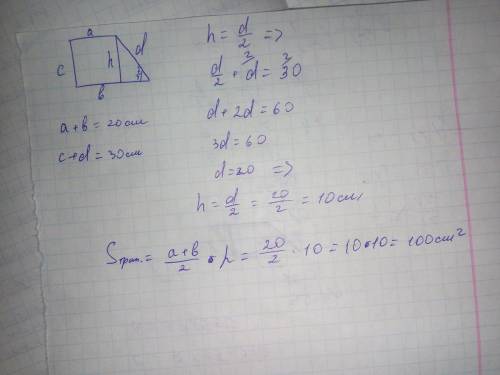 a
c h d
b
a+b = 20см
c+d = 30см
h = d/2 =>
d/2 + d² = 30²
d + 2d = 60
3d = 60
d = 20 =>
h = d/2 = 20/2 = 10см
Sтрап. = a+b/2 • h = 20/2 · 10 = 10•10 = 100см²